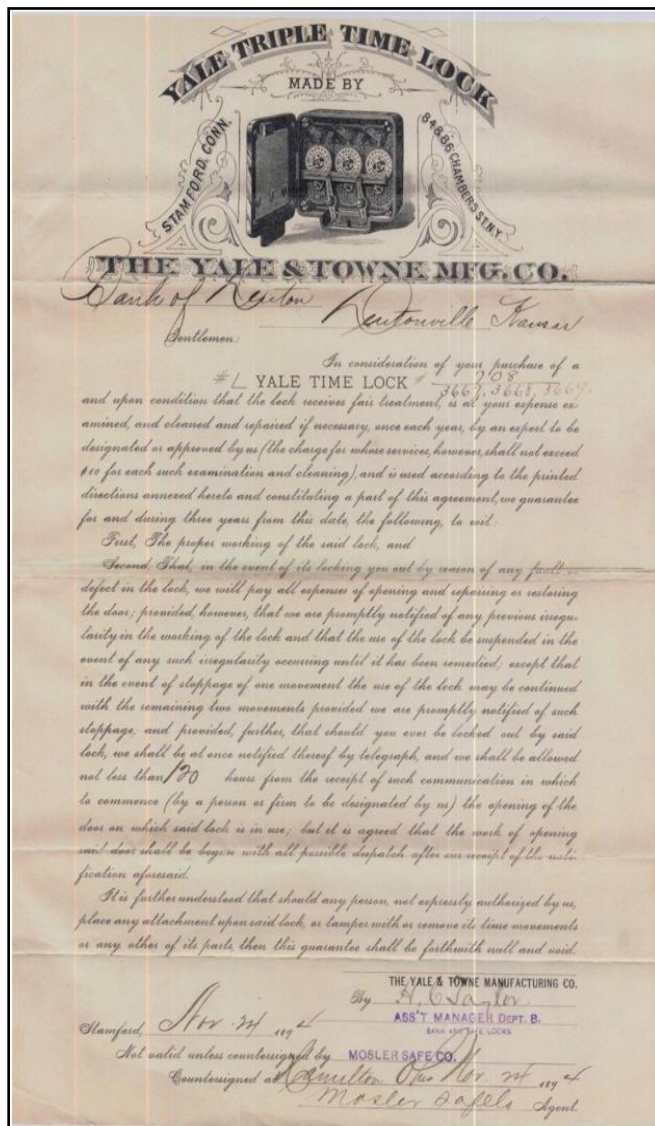 YALE TRIPLE TIME LOCK
MADE BY
STAMFORD, CONN.
84 & 86 CHAMBERS ST. N.Y.
THE YALE & TOWNE MFG. CO.
Bank of
Kansas
Gentlemen:
In consideration of your purchase of a
#L YALE TIME LOCK # 708
3667, 3668, 3669.
and upon condition that the lock receives fair treatment, is at your expense ex-
amined, and cleaned and repaired if necessary, once each year, by an expert to be
designated or approved by us (the charge for whose services, however, shall not exceed
$10 for each such examination and cleaning), and is used according to the printed
directions annexed hereto and constituting a part of this agreement, we guarantee
for and during three years from this date, the following, to wit:
First, The proper working of the said lock, and
Second That, in the event of its locking you out by reason of any fault or
defect in the lock, we will pay all expenses of opening and repairing or restoring
the door; provided, however, that we are promptly notified of any previous irregu-
larity in the working of the lock and that the use of the lock be suspended in the
event of any such irregularity occurring until it has been remedied; except that
in the event of stoppage of one movement the use of the lock may be continued
with the remaining two movements provided we are promptly notified of such
stoppage; and provided, further, that should you ever be locked out by said
lock, we shall be at once notified thereof by telegraph, and we shall be allowed
not less than 120 hours from the receipt of such communication in which
to commence (by a person or firm to be designated by us) the opening of the
door on which said lock is in use; but it is agreed that the work of opening
said door shall be begun with all possible dispatch after our receipt of the noti-
fication aforesaid.
It is further understood that should any person, not expressly authorized by us,
place any attachment upon said lock, or tamper with or remove its time movements
or any other of its parts, then this guarantee shall be forthwith null and void.
THE YALE & TOWNE MANUFACTURING CO.
By H. C. Taylor
ASS'T MANAGER DEPT. B.
BANK AND SAFE LOCKS
Stamford, Nov. 24 1894
Not valid unless countersigned by MOSLER SAFE CO.
Countersigned at Hamilton Ohio Nov. 24 1894
Mosler Agent.